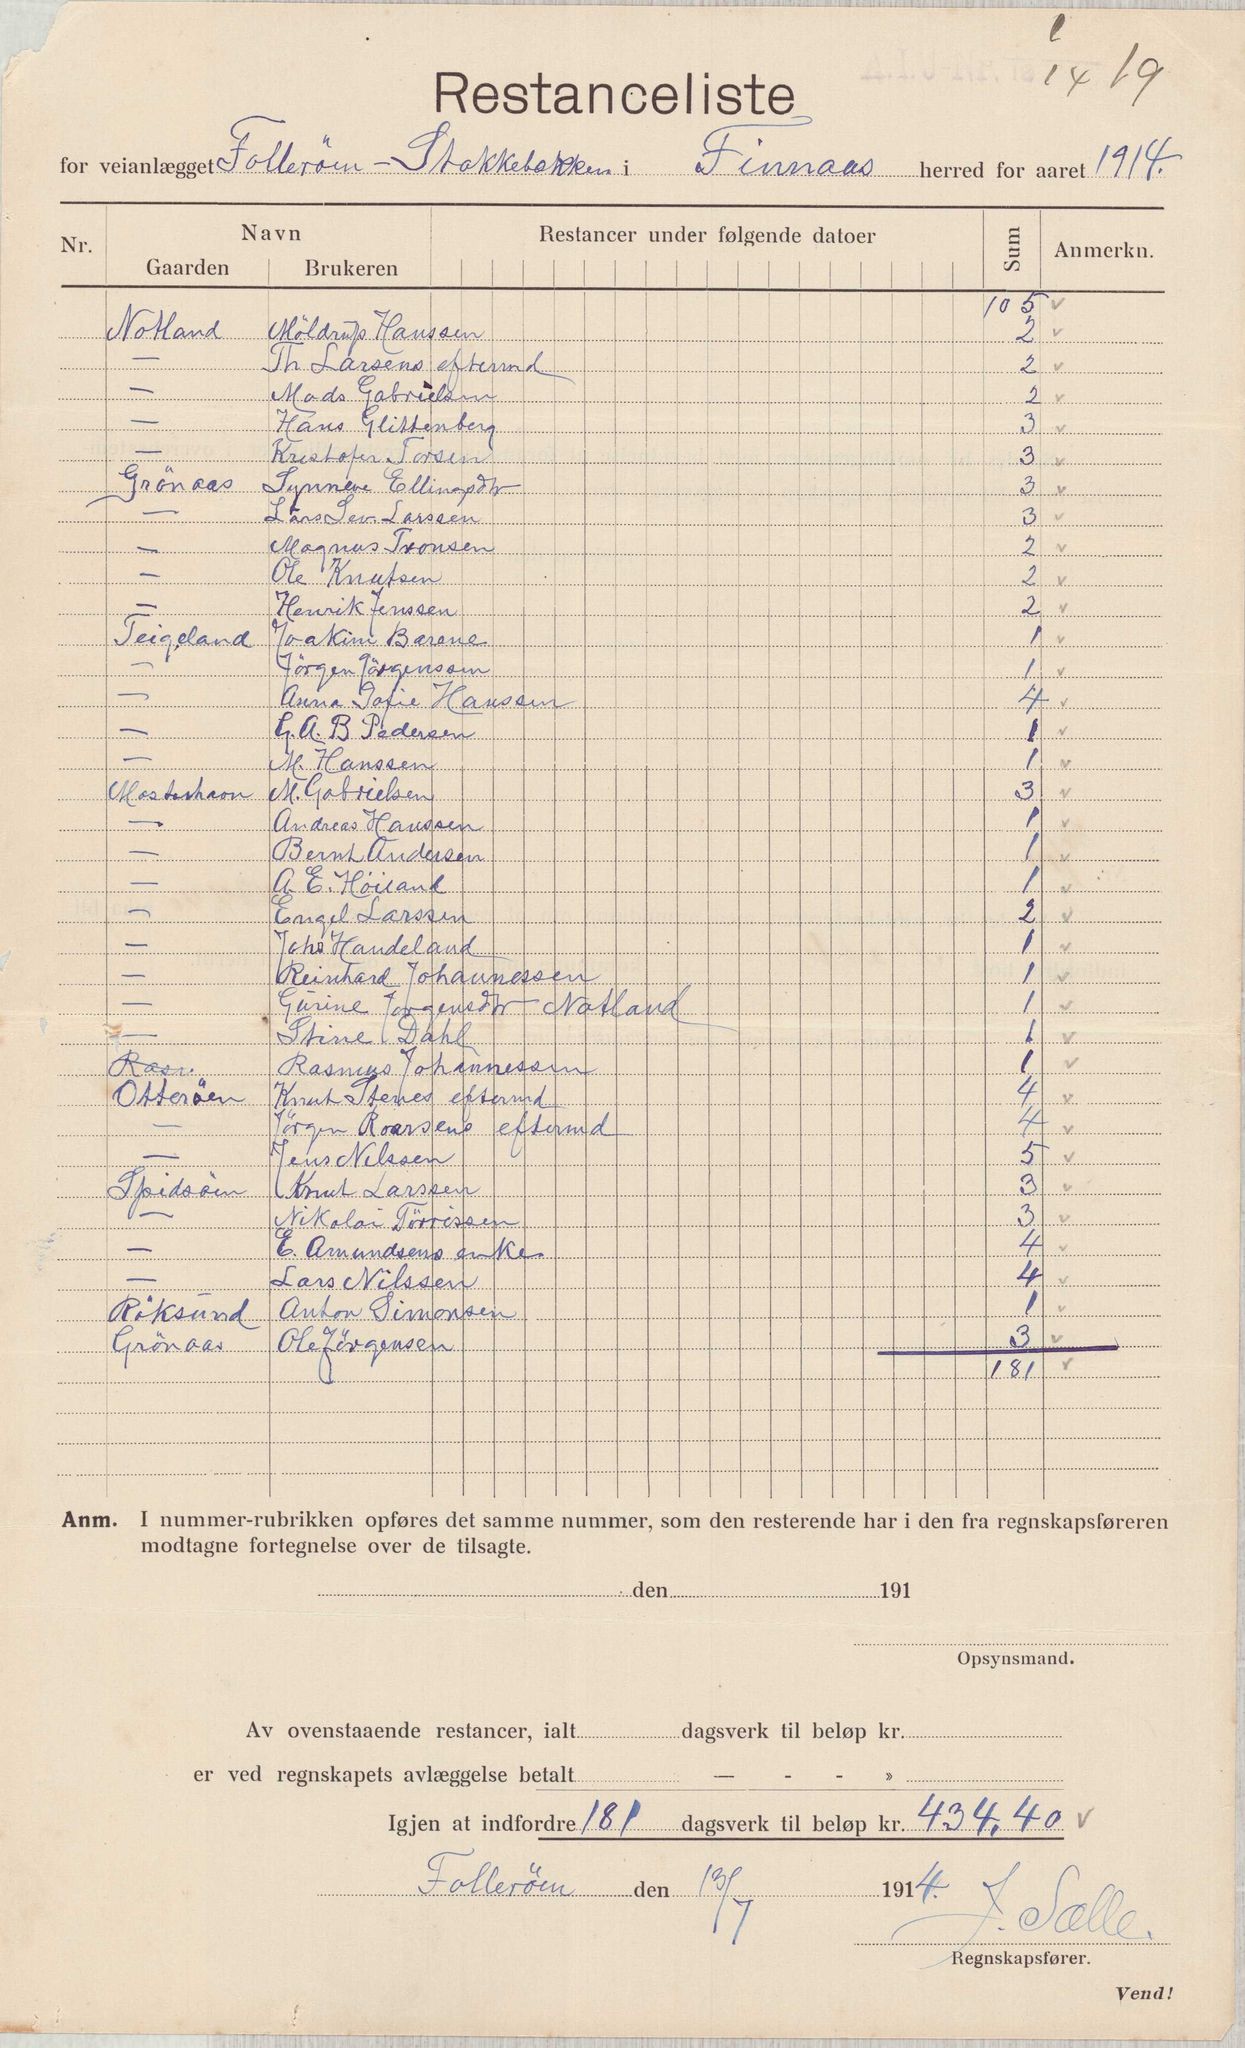 14 19
Restanceliste
for veianlægget Folleröen - Stokkebækken i Finnaas herred for aaret 1914.
Nr. Navn Restancer under følgende datoer Sum Anmerkn.
Gaarden Brukeren
105 v
Notland Möldrup Hanssen 2 v
— Th Larsens eftermd 2 v
— Mads Gabrielsen 2 v
— Hans Glittenberg 3 v
— Kristofer Torsen 3 v
Grönaas Synneve Ellingsdtr 3 v
— Lars Sev. Larssen 3 v
— Magnus Tronsen 2 v
— Ole Knutsen 2 v
— Henrik Jenssen 2 v
Teigeland Joakim Barene 1 v
— Jörgen Jörgenssen 1 v
— Anna Sofie Hanssen 4 v
— G. A. B Pedersen 1 v
— M. Hanssen 1 v
Mosterhavn M. Gabrielsen 3 v
— Andreas Hanssen 1 v
— Bernt Andersen 1 v
— A. E. Höiland 1 v
— Engel Larssen 2 v
— Johs Handeland 1 v
— Reinhard Johannessen 1 v
— Gurine Jörgensdtr Notland 1 v
— Stine Dahl 1 v
Rasm. Rasmus Johannessen 1 v
Otteröen Knut Stenes eftermd 4 v
— Jörgen Roarsens eftermd 4 v
— Jens Nilssen 5 v
Spidsöen Knut Larssen 3 v
— Nikolai Törrissen 3 v
— E. Amundsens enke 4 v
— Lars Nilssen 4 v
Röksund Anton Simonsen 1 v
Grönaas Ole Jörgensen 3 v
181 v
Anm. I nummer-rubrikken opføres det samme nummer, som den resterende har i den fra regnskapsføreren
modtagne fortegnelse over de tilsagte.
den 191
Opsynsmand.
Av ovenstaaende restancer, ialt dagsverk til beløp kr.
er ved regnskapets avlæggelse betalt — - - »
Igjen at indfordre 181 dagsverk til beløp kr. 434,40 v
Folleröen den 13/7 1914.
J. Sælle.
Regnskapsfører.
Vend!